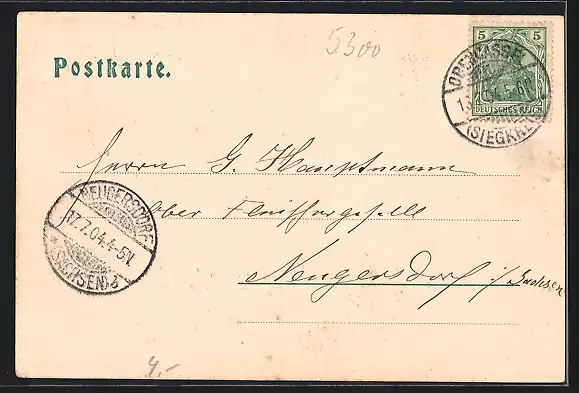 5300
Postkarte.
5 5
DEUTSCHES REICH
OBERCASSEL
(SIEGKREIS)
Herrn G. Hauptmann
Ober Fleischergeselle
Neugersdorf i/Sachsen
NEUGERSDORF
17.7.04.4-5N.
(SACHSEN)
4,-